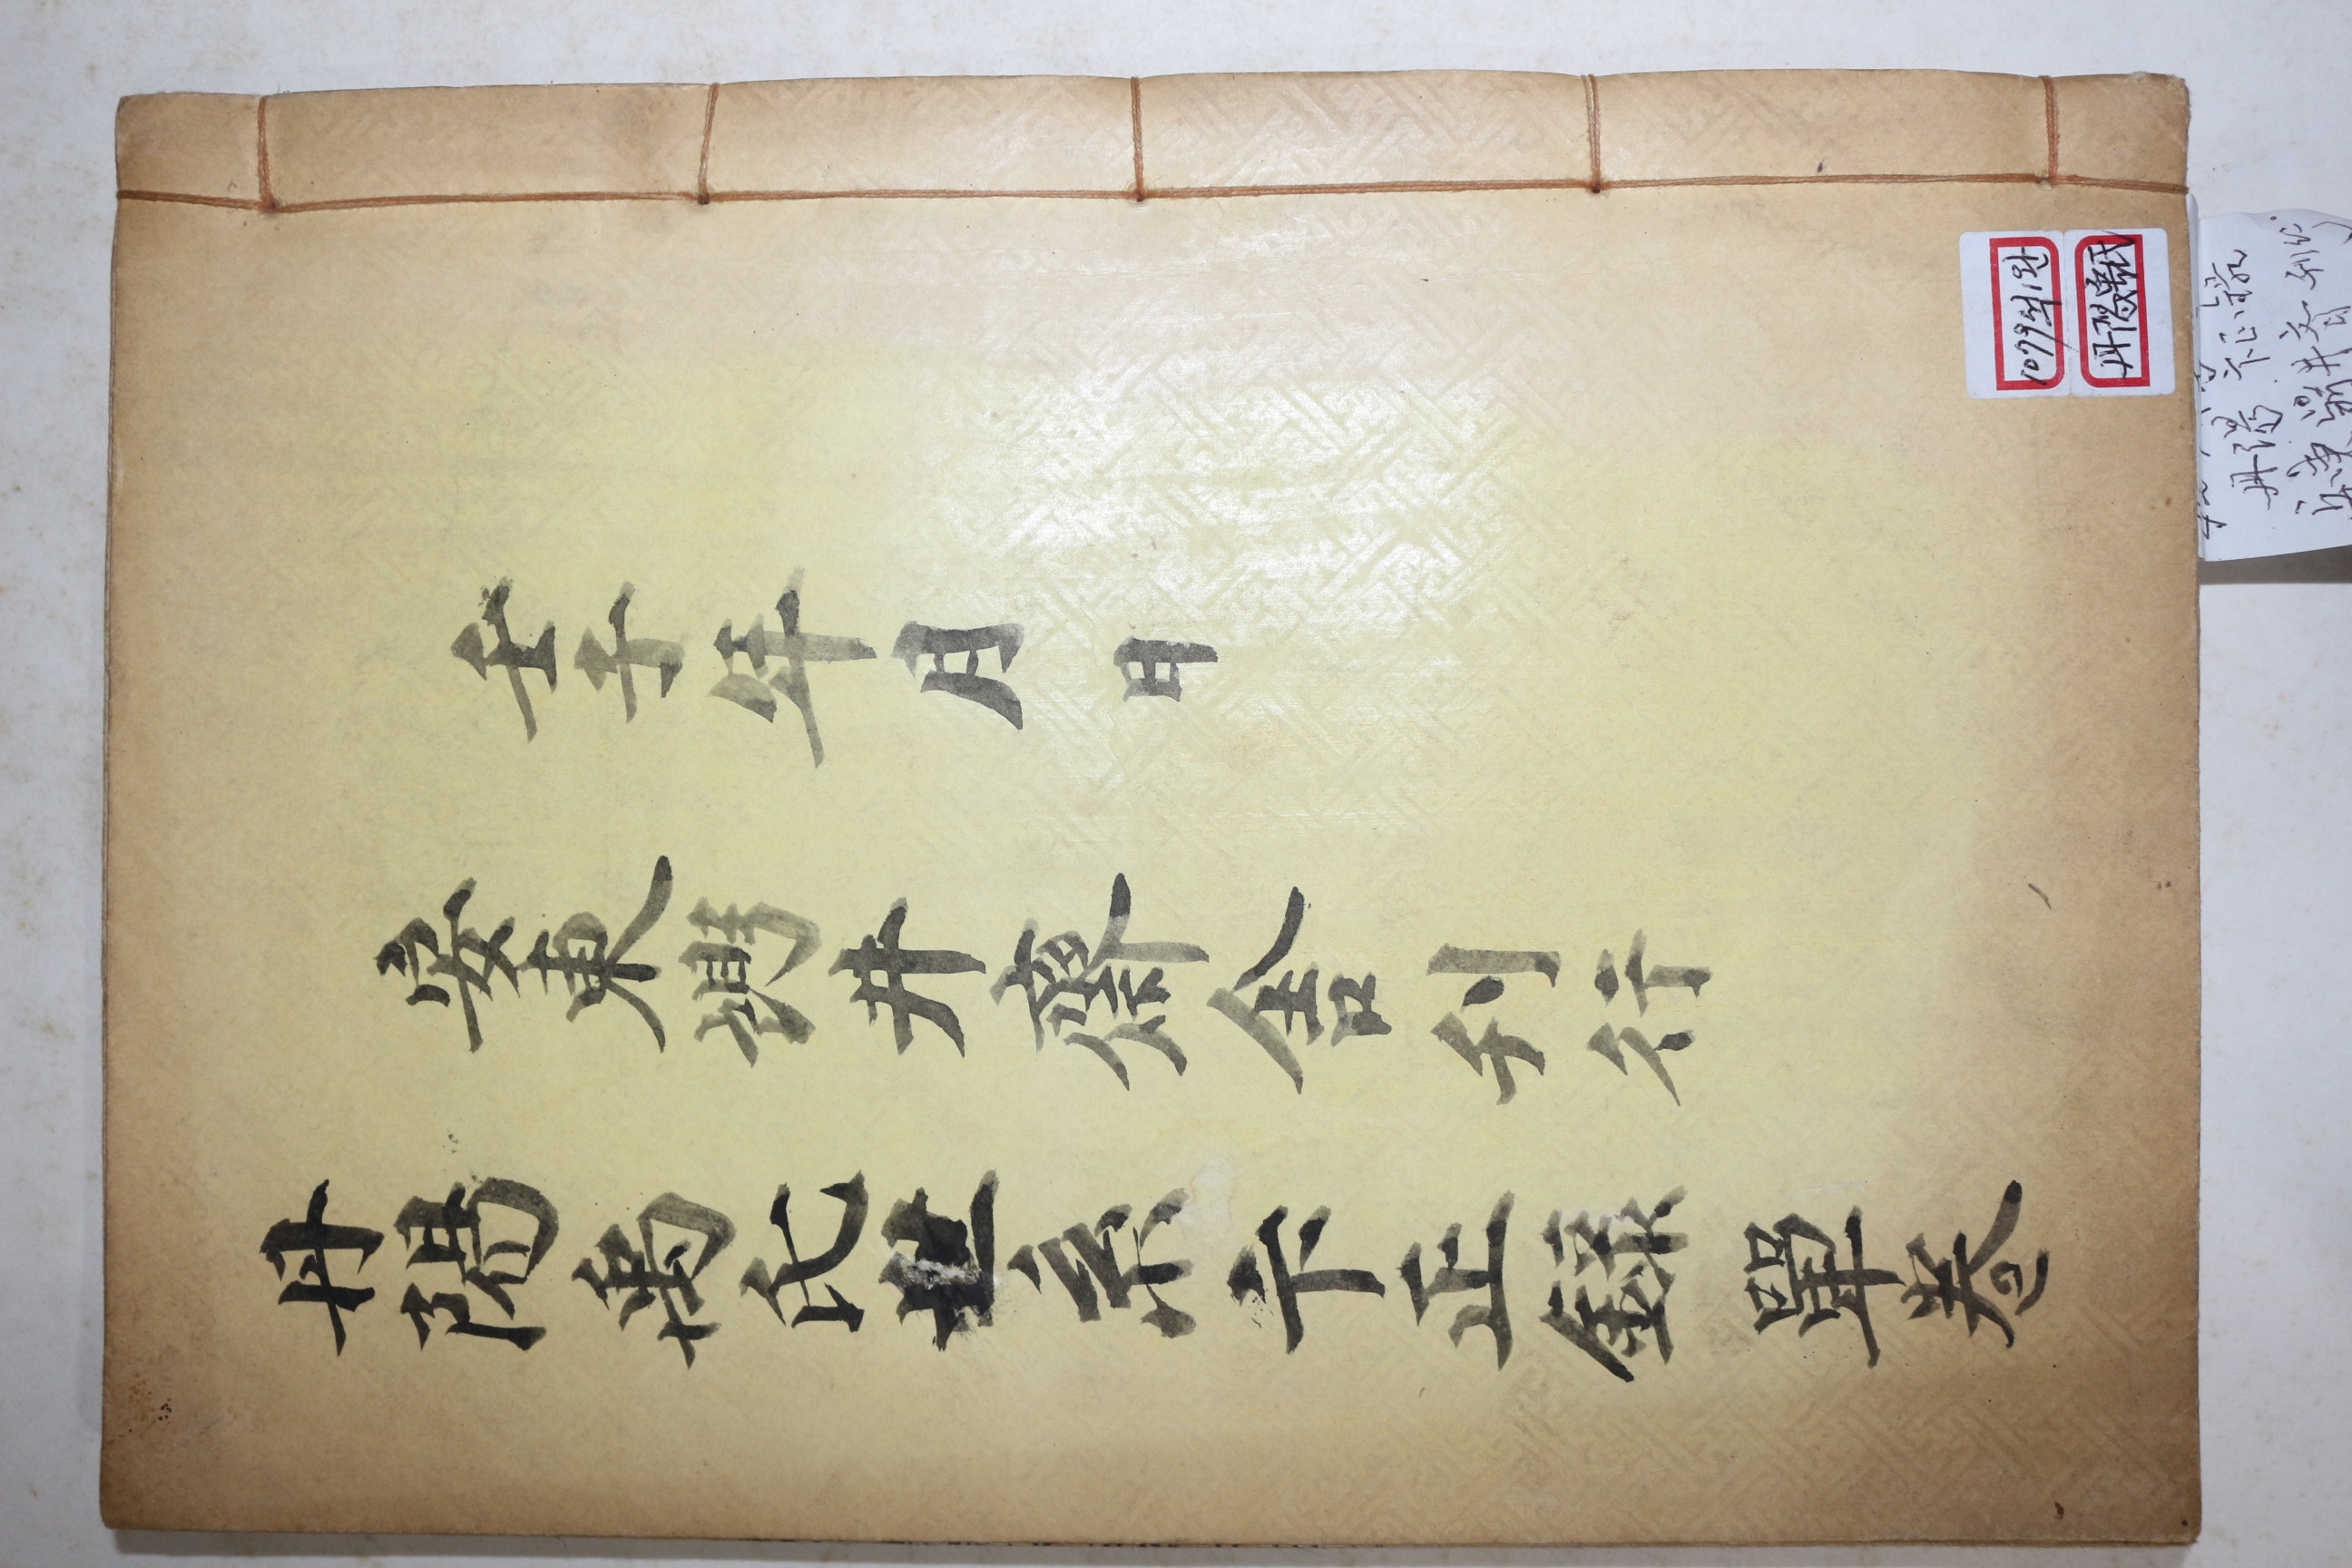 壬子年月 日
安東井齋舍刊行
丹陽禹氏世系卞正錄 單卷
丹陽禹氏
丹陽 卞正錄
安東 井齊 刊行